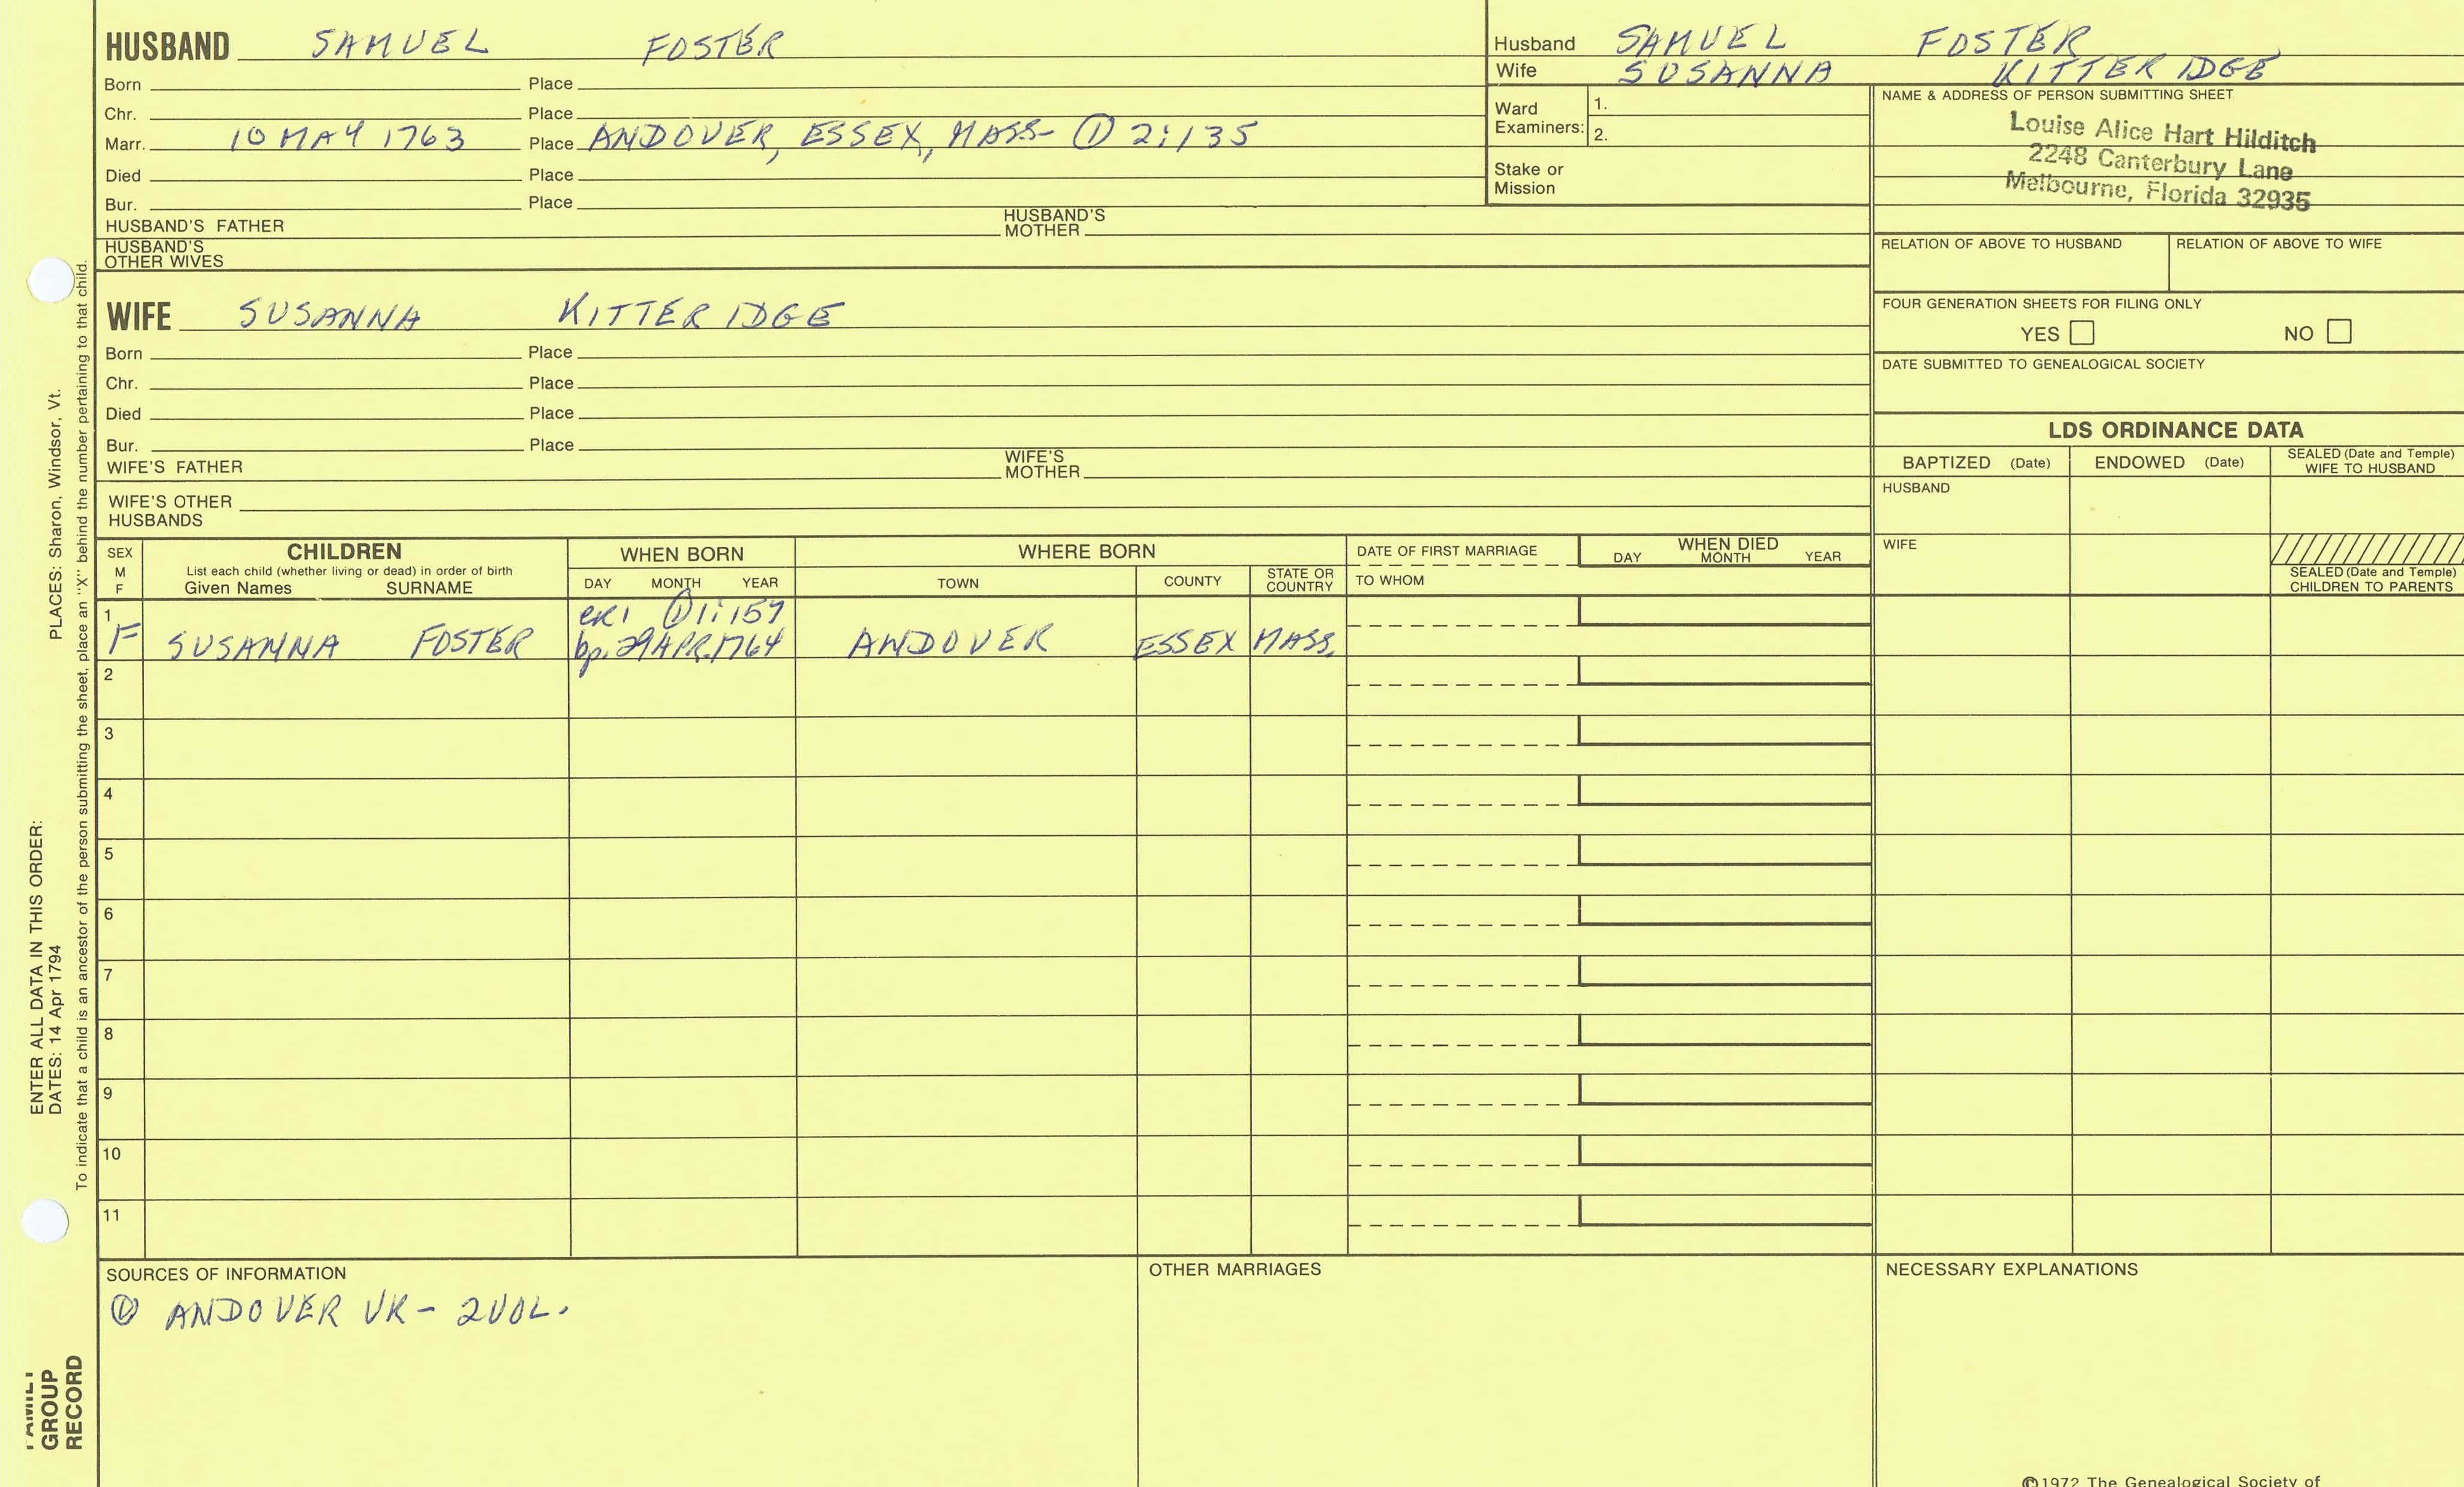 HUSBAND SAMUEL FOSTER
Born Place
Chr. Place
Marr. 10 MAY 1763 Place ANDOVER, ESSEX, MASS- ① 2:135
Died Place
Bur. Place
HUSBAND'S FATHER HUSBAND'S MOTHER
HUSBAND'S OTHER WIVES
Husband SAMUEL FOSTER
Wife SUSANNA KITTERIDGE
Ward Examiners: 1.
2.
Stake or Mission
NAME & ADDRESS OF PERSON SUBMITTING SHEET
Louise Alice Hart Hilditch
2248 Canterbury Lane
Melbourne, Florida 32935
RELATION OF ABOVE TO HUSBAND RELATION OF ABOVE TO WIFE
FOUR GENERATION SHEETS FOR FILING ONLY
YES NO
DATE SUBMITTED TO GENEALOGICAL SOCIETY
WIFE SUSANNA KITTERIDGE
Born Place
Chr. Place
Died Place
Bur. Place
WIFE'S FATHER WIFE'S MOTHER
WIFE'S OTHER HUSBANDS
LDS ORDINANCE DATA
BAPTIZED (Date) ENDOWED (Date) SEALED (Date and Temple) WIFE TO HUSBAND
HUSBAND
WIFE
SEALED (Date and Temple) CHILDREN TO PARENTS
SEX M F
CHILDREN
List each child (whether living or dead) in order of birth
Given Names SURNAME
WHEN BORN
DAY MONTH YEAR
WHERE BORN
TOWN COUNTY STATE OR COUNTRY
DATE OF FIRST MARRIAGE
TO WHOM
WHEN DIED
DAY MONTH YEAR
1 ① 1:157
F SUSANNA FOSTER bp. 29 APR. 1764 ANDOVER ESSEX MASS.
2
3
4
5
6
7
8
9
10
11
SOURCES OF INFORMATION
① ANDOVER VR - 2 VOL.
OTHER MARRIAGES
NECESSARY EXPLANATIONS
©1972 The Genealogical Society of
ENTER ALL DATA IN THIS ORDER:
DATES: 14 Apr 1794 PLACES: Sharon, Windsor, Vt.
To indicate that a child is an ancestor of the person submitting the sheet, place an "X" behind the number pertaining to that child.
FAMILY
GROUP
RECORD